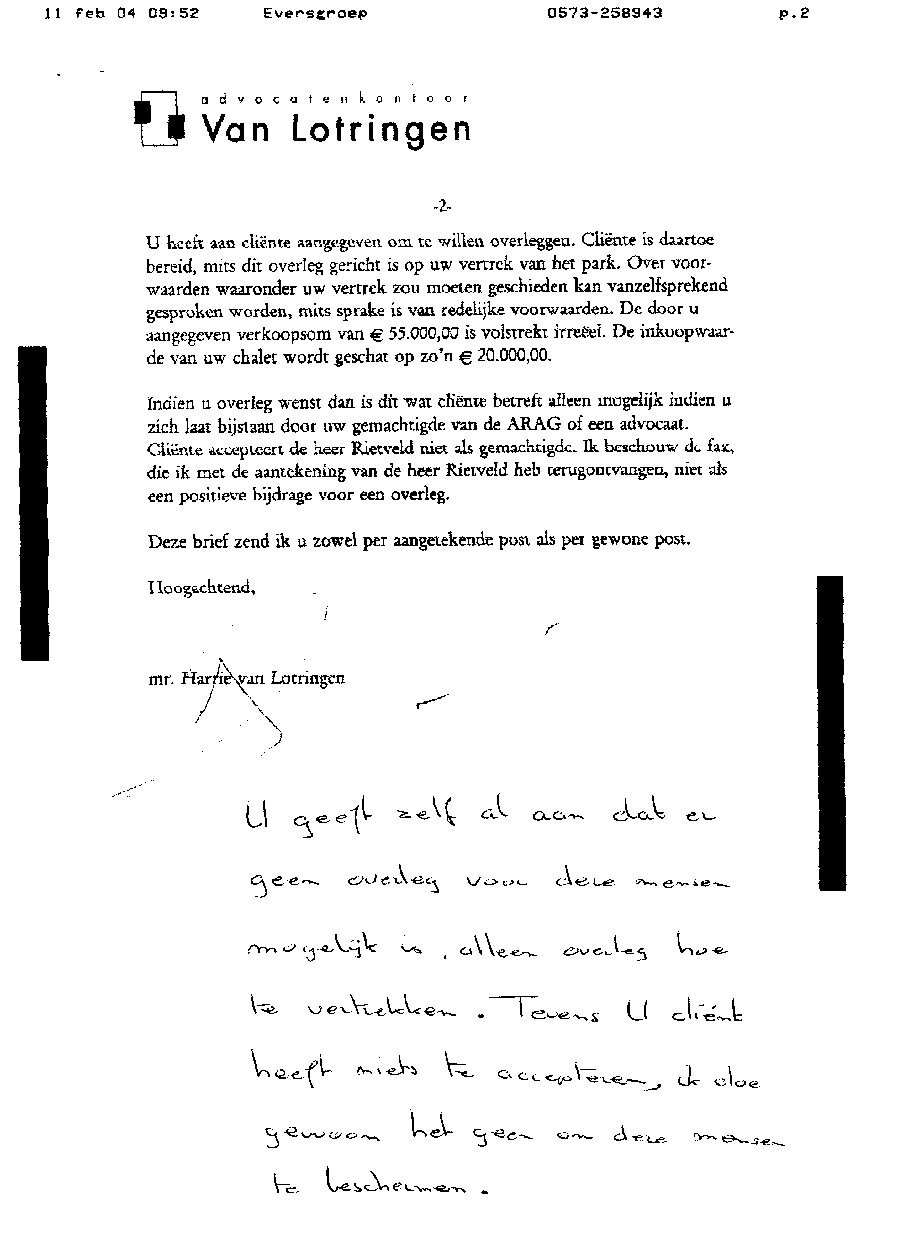 11 feb 04 09:52 Eversgroep 0573-258943 p.2
advocatenkantoor
Van Lotringen
-2-
U heeft aan cliënte aangegeven om te willen overleggen. Cliënte is daartoe
bereid, mits dit overleg gericht is op uw vertrek van het park. Over voor-
waarden waaronder uw vertrek zou moeten geschieden kan vanzelfsprekend
gesproken worden, mits sprake is van redelijke voorwaarden. De door u
aangegeven verkoopsom van € 55.000,00 is volstrekt irreëel. De inkoopwaar-
de van uw chalet wordt geschat op zo'n € 20.000,00.
Indien u overleg wenst dan is dit wat cliënte betreft alleen mogelijk indien u
zich laat bijstaan door uw gemachtigde van de ARAG of een advocaat.
Cliënte accepteert de heer Rietveld niet als gemachtigde. Ik beschouw de fax,
die ik met de aantekening van de heer Rietveld heb terugontvangen, niet als
een positieve bijdrage voor een overleg.
Deze brief zend ik u zowel per aangetekende post als per gewone post.
Hoogachtend,
mr. Harrie van Lotringen
U geeft zelf al aan dat er
geen overleg voor deze mensen
mogelijk is, alleen overleg hoe
te vertrekken. Tevens U cliënt
heeft niets te accepteren, ik doe
gewoon het geen om deze mensen
te beschermen.